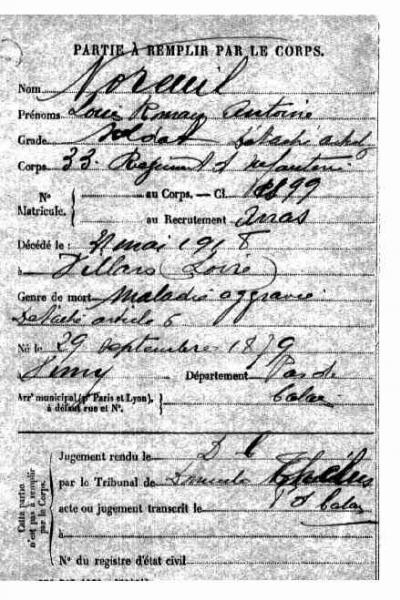 PARTIE À REMPLIR PAR LE CORPS.
Nom Noreuil
Prénoms Louis Romain Antoine
Grade Soldat Détaché
Corps 33e Régiment d'infanterie
N° Matricule. { au Corps. — Cl. 1899
au Recrutement Arras
Décédé le : mai 1918
à Villars (Loire)
Genre de mort Maladie aggravée
Détaché article 6
Né le 29 septembre 1879
Vimy Département Pas de
Calais
Arrt municipal (pr Paris et Lyon), à défaut rue et N°. }
Cette partie n'est pas à remplir par le Corps.
Jugement rendu le
par le Tribunal de Thélus
acte ou jugement transcrit le P. d. Calais
à
N° du registre d'état civil